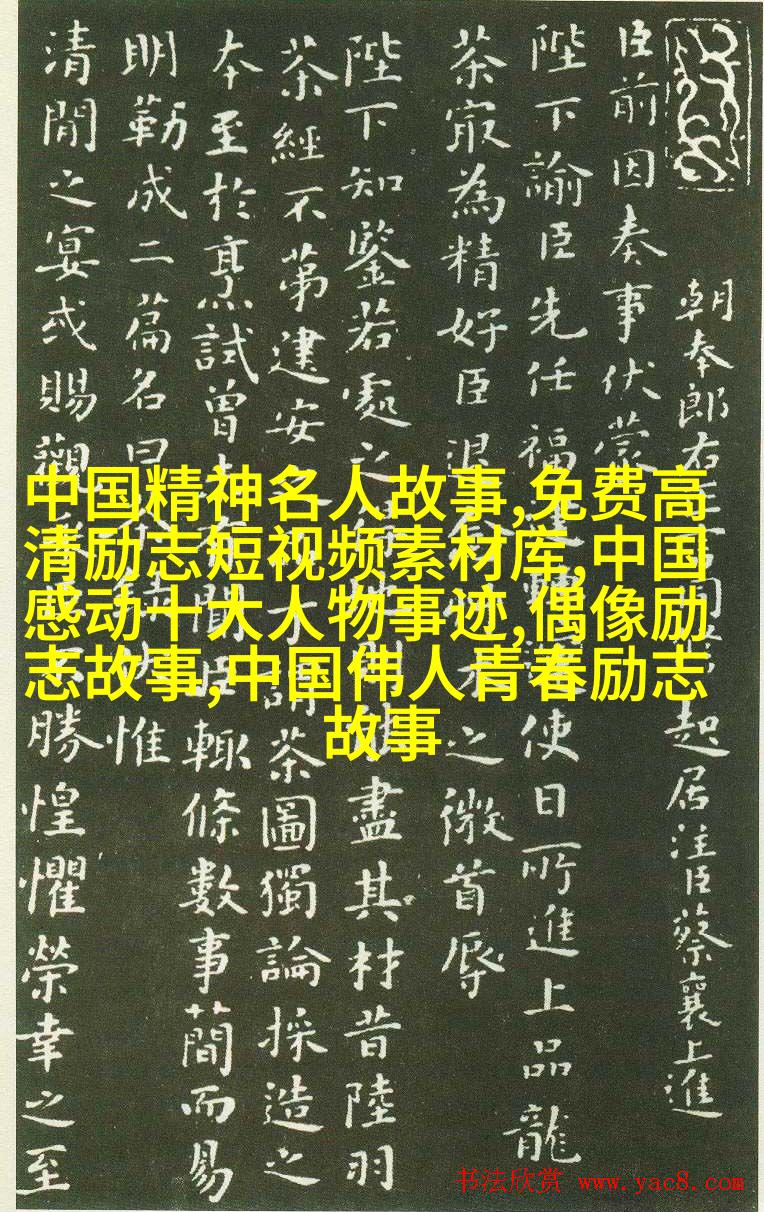 朝奉郎右正起居注臣蔡襄上進
臣前因奏事伏蒙
陛下諭臣先任福使日所進上品龍
茶㝡為精好臣退之微首辱
陛下知鑒若處之盡其材昔陸羽
茶經不第建安茶圖獨論採造之
本至於烹試曾有聞臣輒條數事簡而易
明勒成二篇名曰惟
清閒之宴或賜觀勝惶懼榮幸之至
中国精神名人故事,免费高
清励志短视频素材库,中国
感动十大人物事迹,偶像励
志故事,中国伟人青春励志
故事
书法欣赏 www.yac8.com